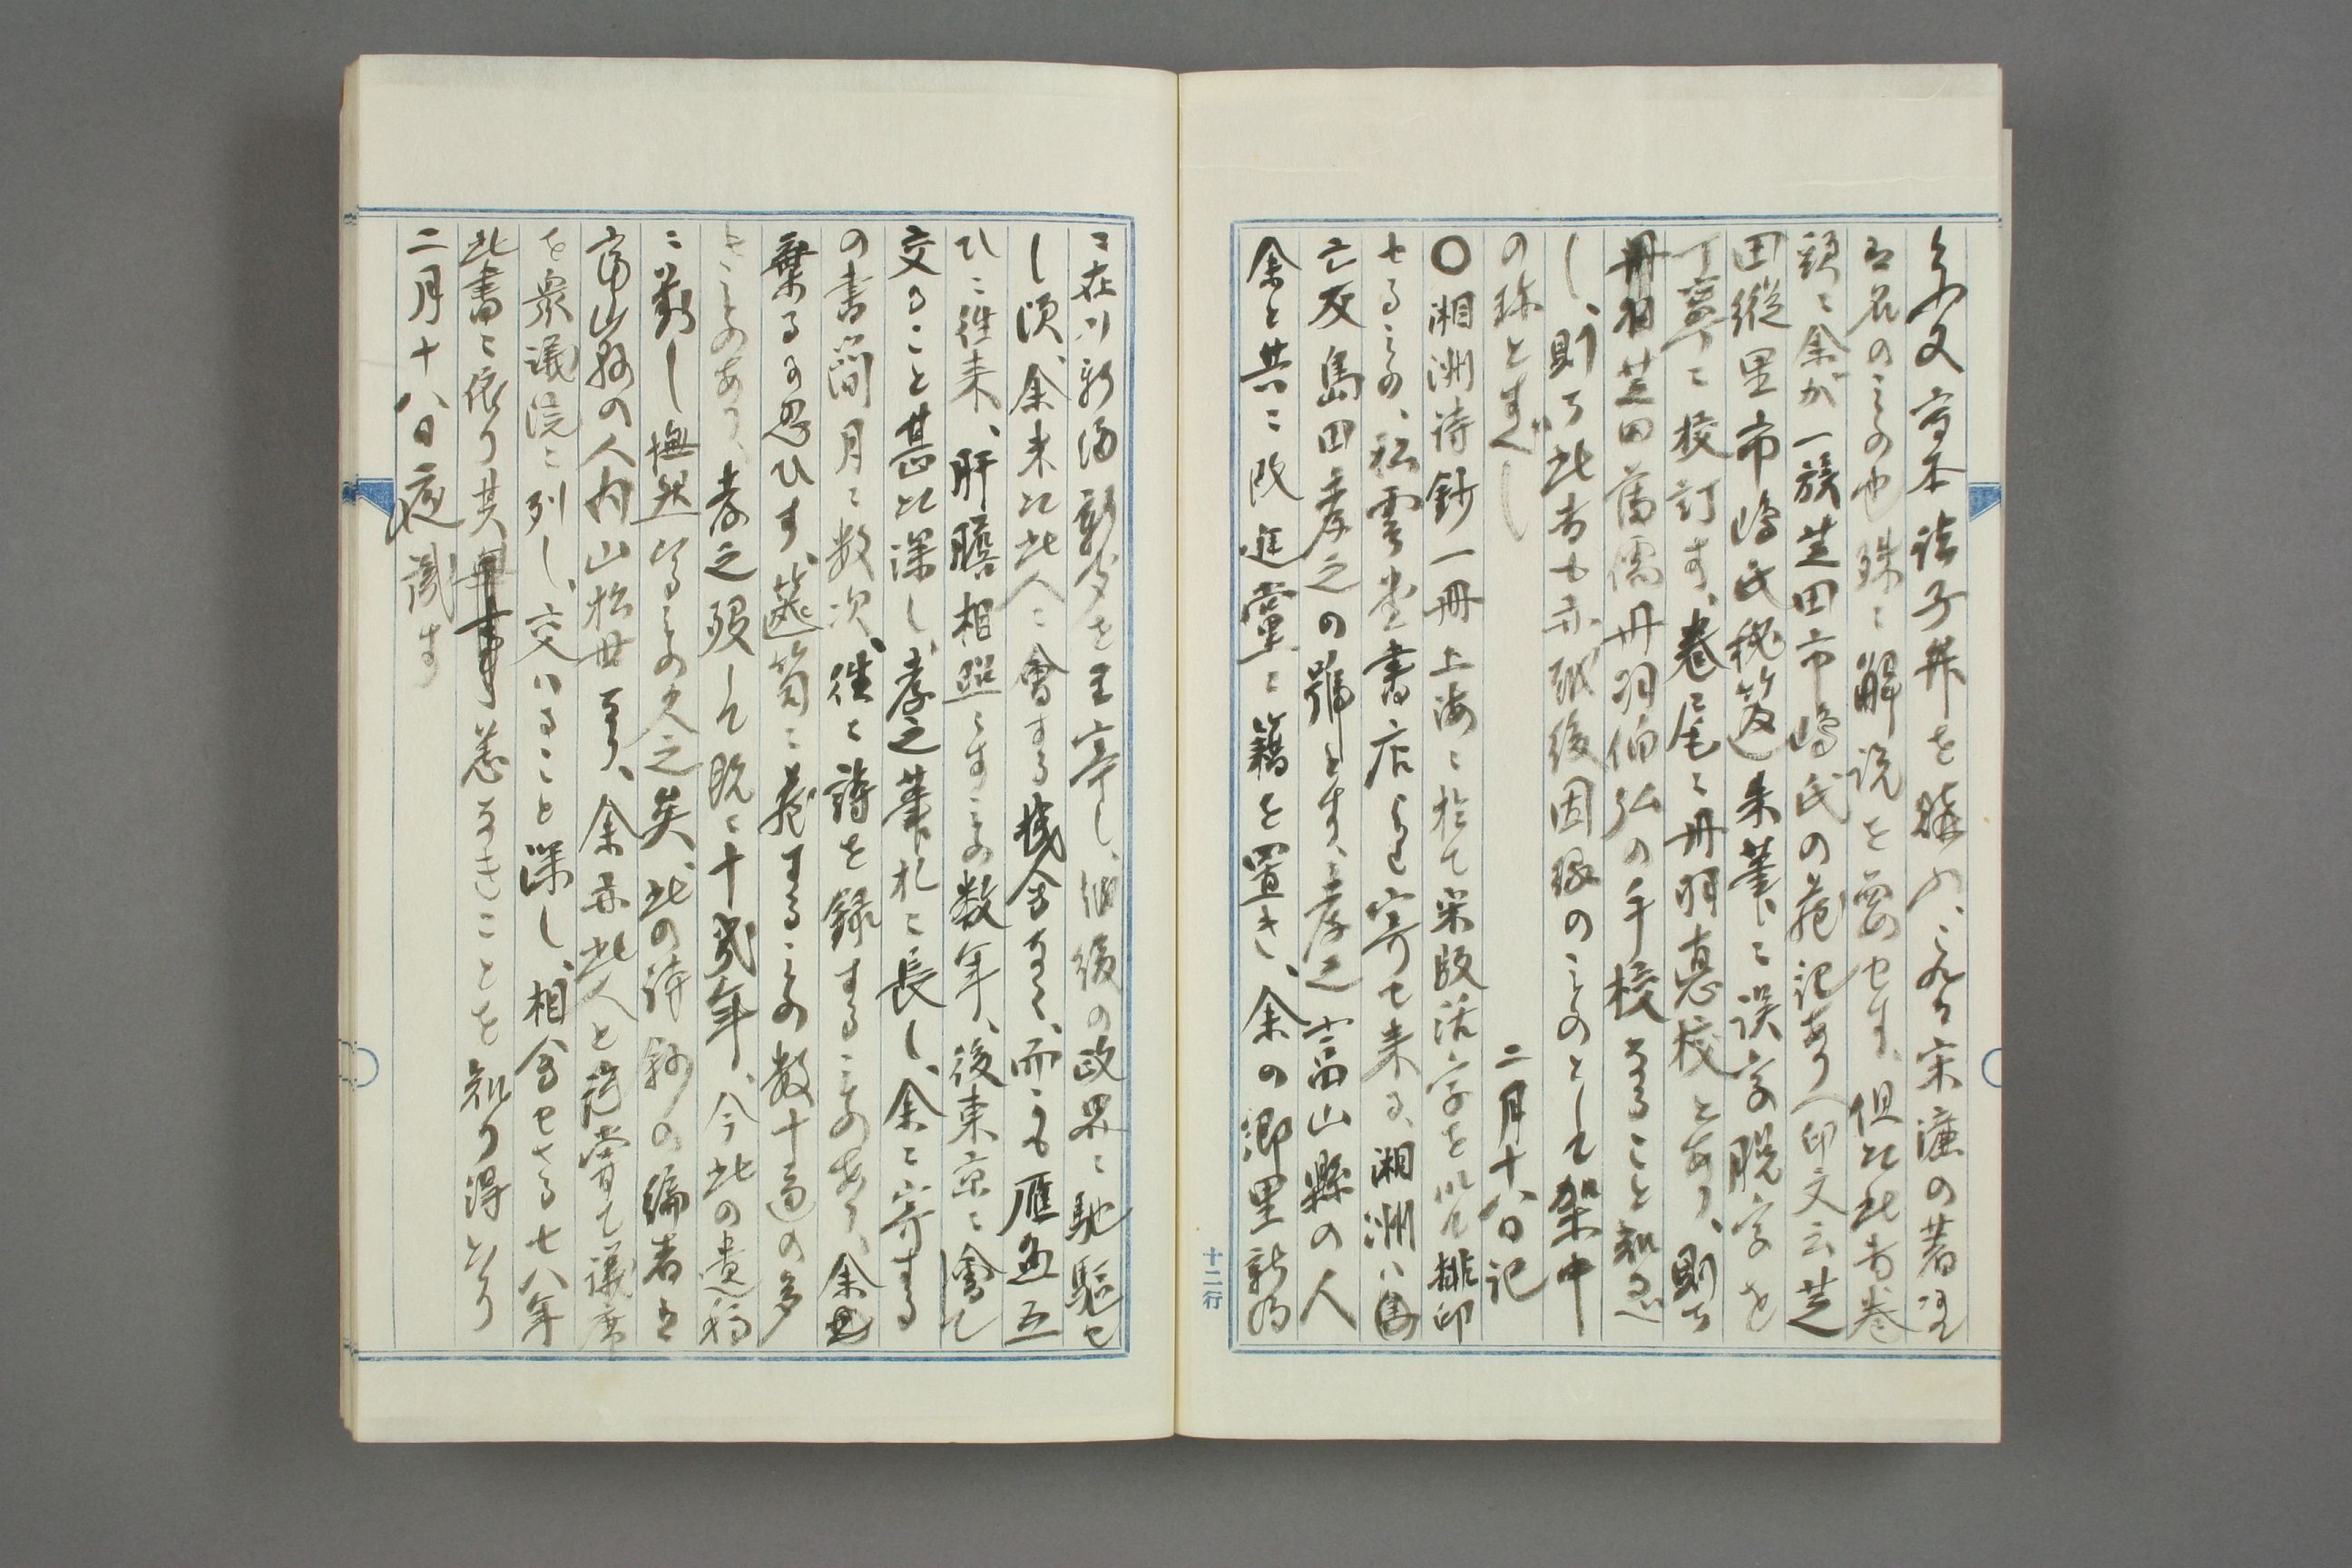 余又写本諸子弁を購ふ、これ宋濂の著
有名のもの也、殊に解説を要せす、但し此書巻
頭に余が一族芝田市嶋氏の蔵記あり（印文云芝
田縦里市嶋氏秘笈）朱筆に誤字脱字を
丁寧に校訂す、巻尾に丹羽惪校とあり、則ち
丹羽芝田旧儒丹羽伯弘の手校なること知るべ
し、則ち此書も亦越後因縁のものとして架中
の珎とすべし
二月十八日記
〇湘洲詩鈔一冊上海に於て宋版活字を以て排印
せるもの、松雲堂書店より寄せ来る、湘洲ハ
亡友島田孝之の号とす、孝之富山縣の人
余と共に改進黨に籍を置き、余の郷里新潟
に在りて新潟新聞を主宰し、越後の政界に馳駆せ
し頃、余未た此人に會する機会なく、而かも雁魚互
ひに往来、肝膽相照らすもの数年、後東京に會して
交ること甚た深し、孝之筆札に長し、余に寄する
の書簡月に数次、往々詩を録するものあり、余
棄るに忍ひす、篋笥に蔵するもの数十通の多
きものあり、孝之歿して既に十弐年、今此の遺稿
に對し憮然たるもの久之矣、此の詩鈔の編者は
富山縣の人内山松世なり、余亦此人と嘗て議席
を衆議院に列し、交ハること深し、相会せさる七八年
此書に依り其恙なきことを知り得たり
二月十八日夜識す
十二行